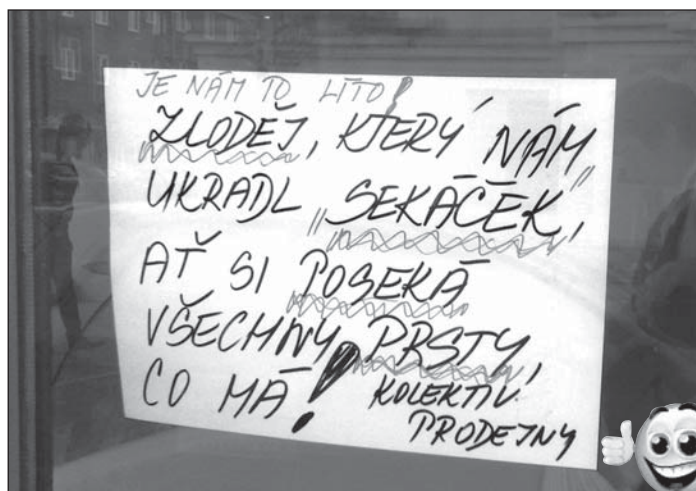 JE NÁM TO LÍTO!
ZLODĚJ, KTERÝ NÁM
UKRADL „SEKÁČEK",
AŤ SI POSEKÁ
VŠECHNY PRSTY,
CO MÁ!
KOLEKTIV
PRODEJNY